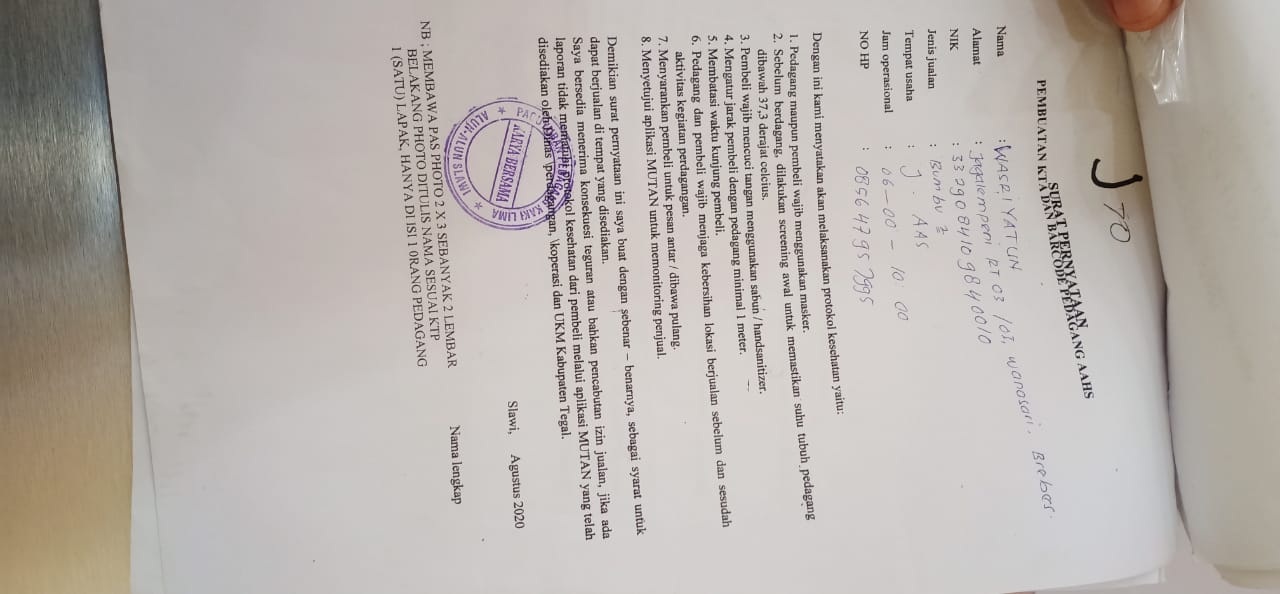 J 70
SURAT PERNYATAAN
PEMBUATAN KTA DAN BARCODE PEDAGANG AAHS
Nama : WASRIYATUN
Alamat : RT 03 / 03, wanasari, Brebes.
NIK : 3329084109840010
Jenis jualan : Bumbu 2
Tempat usaha : J. AAS
Jam operasional : 06-00 - 10.00
NO HP : 085647957995
Dengan ini kami menyatakan akan melaksanakan protokol kesehatan yaitu:
1. Pedagang maupun pembeli wajib menggunakan masker.
2. Sebelum berdagang, dilakukan screening awal untuk memastikan suhu tubuh pedagang
dibawah 37,3 derajat celcius.
3. Pembeli wajib mencuci tangan menggunakan sabun / handsanitizer.
4. Mengatur jarak pembeli dengan pedagang minimal 1 meter.
5. Membatasi waktu kunjung pembeli.
6. Pedagang dan pembeli wajib menjaga kebersihan lokasi berjualan sebelum dan sesudah
aktivitas kegiatan perdagangan.
7. Menyarankan pembeli untuk pesan antar / dibawa pulang.
8. Menyetujui aplikasi MUTAN untuk memonitoring penjual.
Demikian surat pernyataan ini saya buat dengan sebenar – benarnya, sebagai syarat untuk
dapat berjualan di tempat yang disediakan.
Saya bersedia menerima konsekuesi teguran atau bahkan pencabutan izin jualan, jika ada
laporan tidak mematuhi protokol kesehatan dari pembeli melalui aplikasi MUTAN yang telah
disediakan oleh Dinas perdagangan, koperasi dan UKM Kabupaten Tegal.
Slawi, Agustus 2020
Nama lengkap
PAGUYUBAN PEDAGANG KAKI LIMA
KARYA BERSAMA
ALUN-ALUN SLAWI
NB : MEMBAWA PAS PHOTO 2 X 3 SEBANYAK 2 LEMBAR
BELAKANG PHOTO DITULIS NAMA SESUAI KTP
1 (SATU) LAPAK, HANYA DI ISI 1 ORANG PEDAGANG